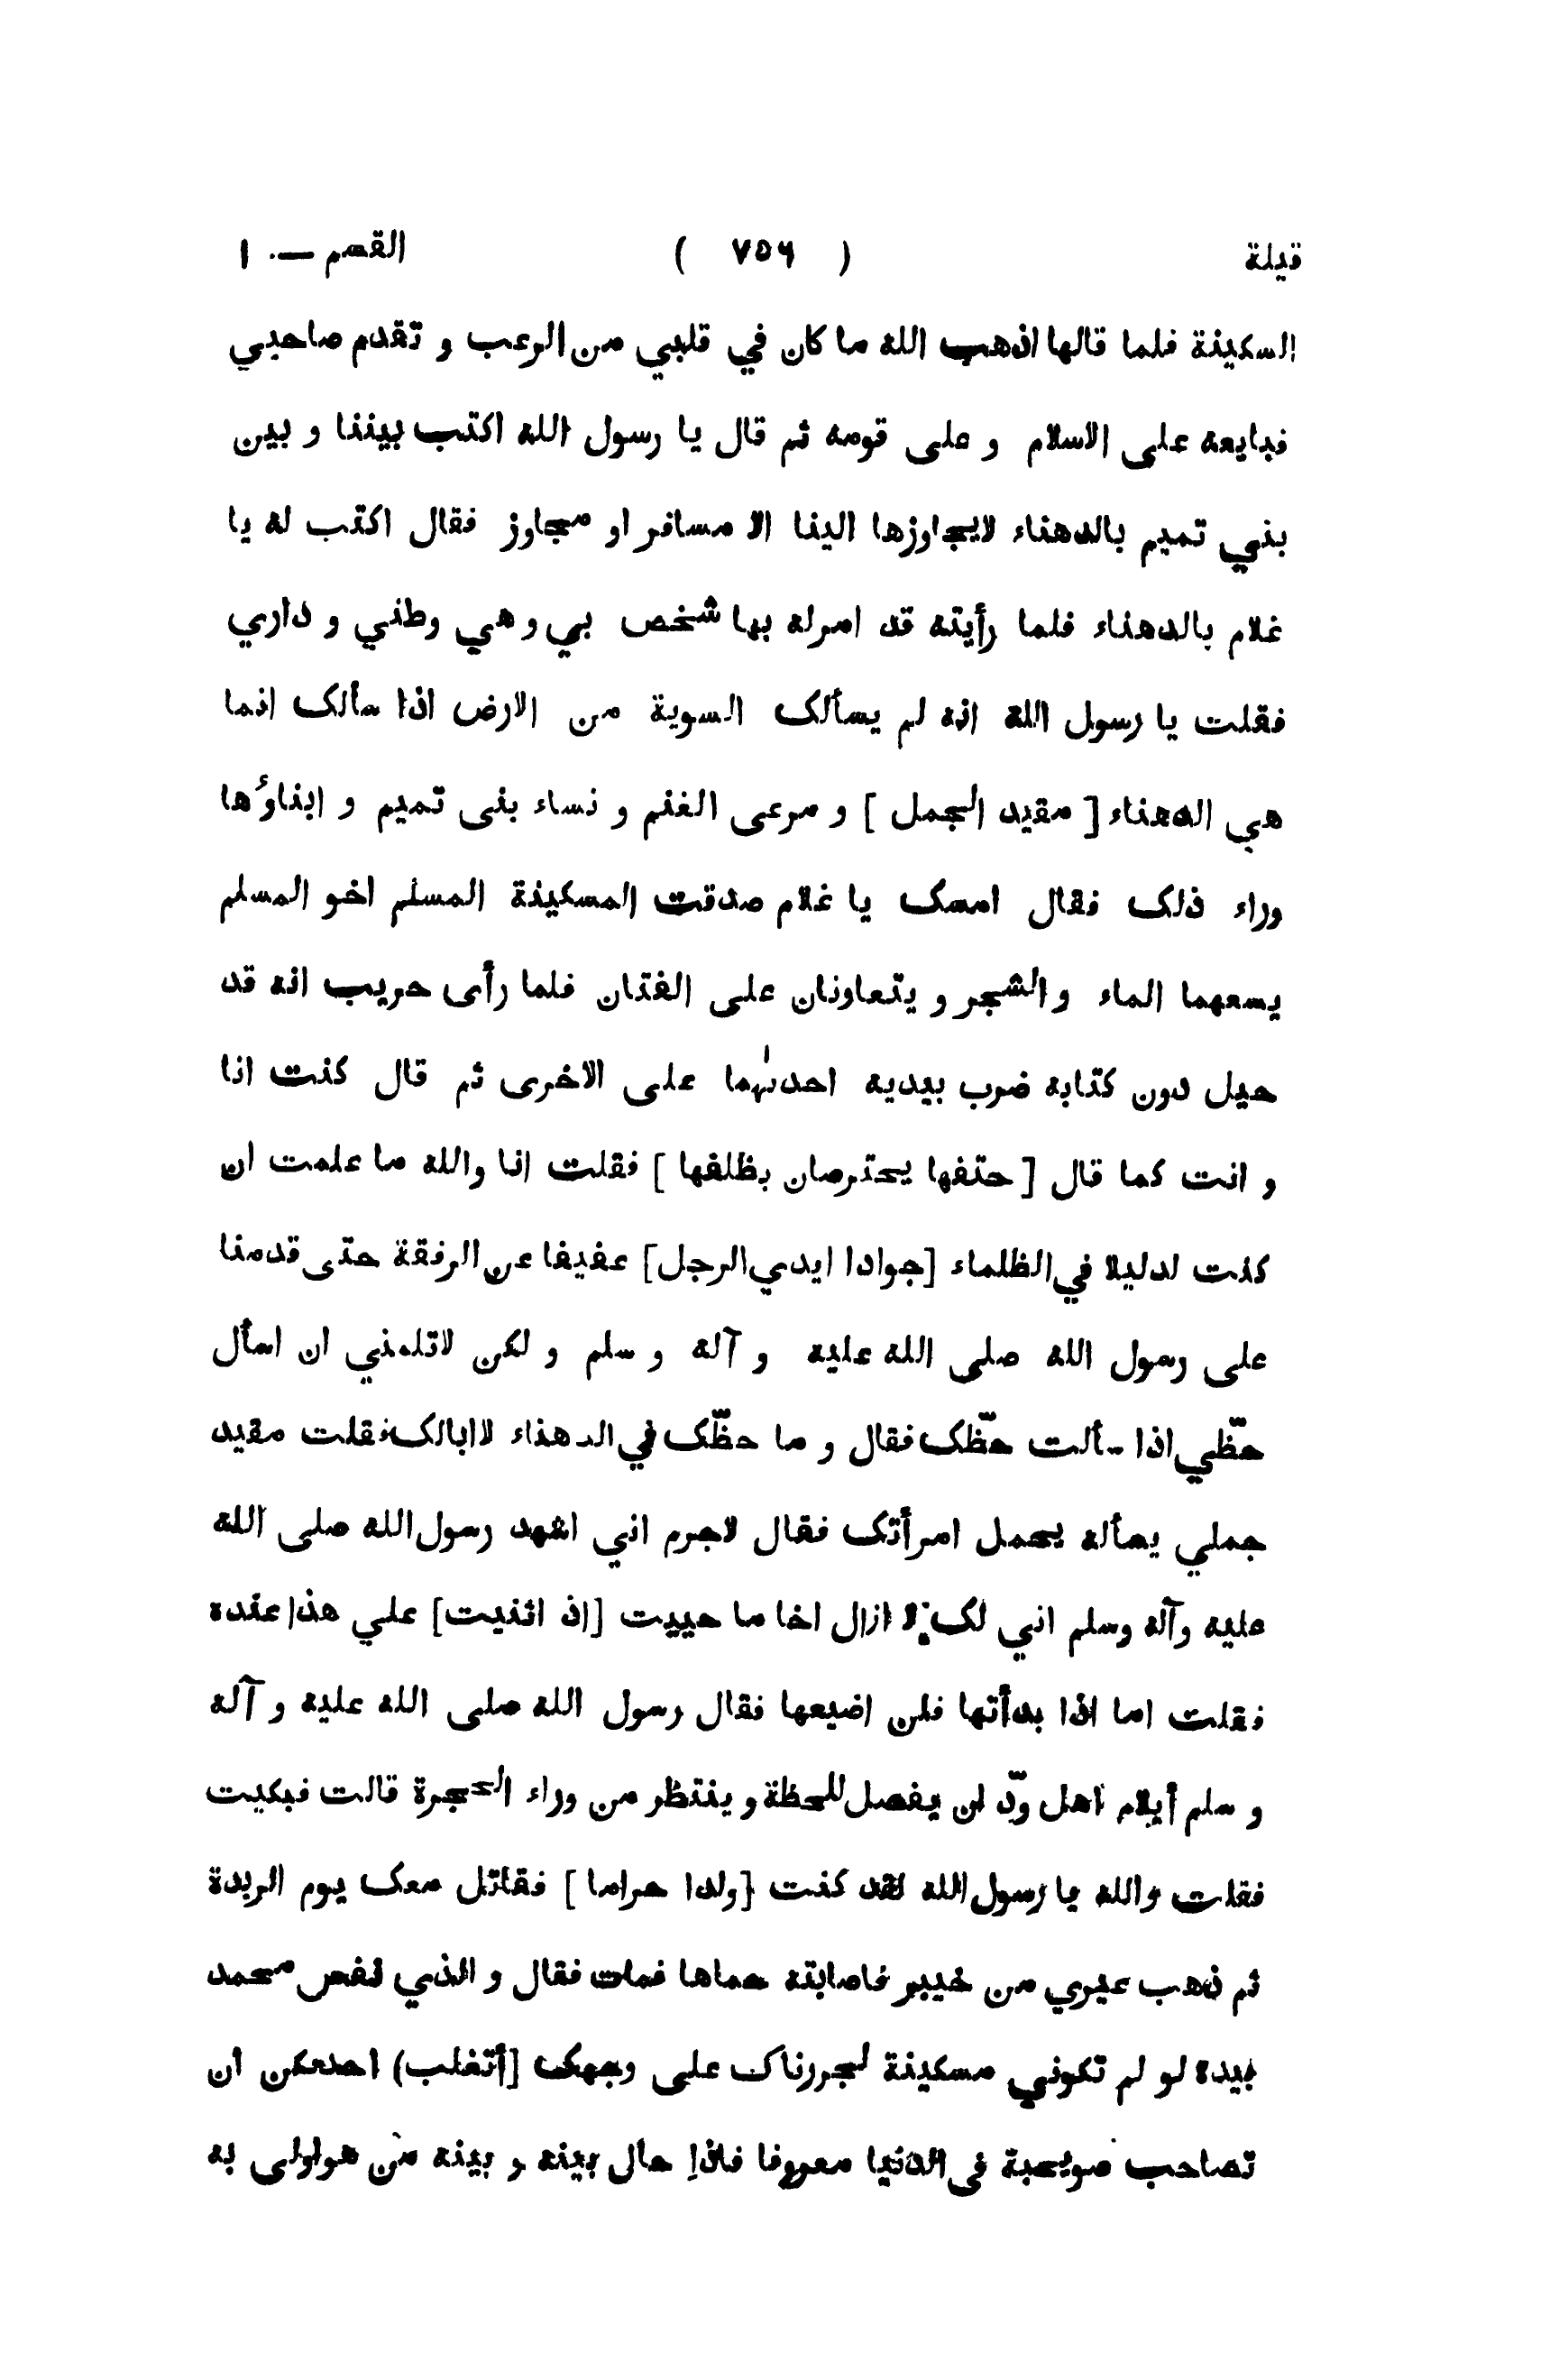 قيلة ( ٧٥٦ ) القسم — ١
السكينة فلما قالها اذهب الله ما كان في قلبي من الرعب و تقدم صاحبي
فبايعه على الاسلام و على قومه ثم قال يا رسول الله اكتب بيننا و بين
بني تميم بالدهناء لايجاوزها الينا الا مسافر او مجاوز فقال اكتب له يا
غلام بالدهناء فلما رأيته قد امر له بها شخص بي و هي وطني و داري
فقلت يا رسول الله انه لم يسألك السوية من الارض اذا سألك انما
هي الدهناء [ مقيد الجمل ] و مرعى الغنم و نساء بنى تميم و ابناؤها
وراء ذلك فقال امسك يا غلام صدقت المسكينة المسلم اخو المسلم
يسعهما الماء والشجر و يتعاونان على الفتان فلما رأى حريب انه قد
حيل دون كتابه ضرب بيديه احدىهما على الاخرى ثم قال كنت انا
و انت كما قال [ حتفها يحترصان بظلفها ] فقلت انا والله ما علمت ان
كنت لدليلا في الظلماء [جوادا ايدي الرجل] عفيفا عن الرفقة حتى قدمنا
على رسول الله صلى الله عليه و آله و سلم و لكن لاتلمني ان اسأل
حظّي اذا سألت حظّك فقال و ما حظّك في الدهناء لاابالك فقلت مقيد
جملي يسأله يحمل امرأتك فقال لاجرم اني اشهد رسول الله صلى الله
عليه وآله وسلم اني لك لا ازال اخا ما حييت [اذ اثنيت] علي هذا عنده
فقلت اما اذا بدأتها فلن اضيعها فقال رسول الله صلى الله عليه و آله
و سلم أيلام اهل ودّ لن يفصل للحظة و ينتظر من وراء الحجرة قالت فبكيت
فقلت والله يا رسول الله لقد كنت [ولدا حراما ] فقاتل معك يوم الربدة
ثم ذهب عيري من خيبر فاصابته حماها فمات فقال و الذي نفس محمد
بيده لو لم تكوني مسكينة لجررناك على وجهك [أتغلب) احدىكن ان
تصاحب صويحبة في الدنيا معروفا فاذا حال بينه و بينه من هو اولى به